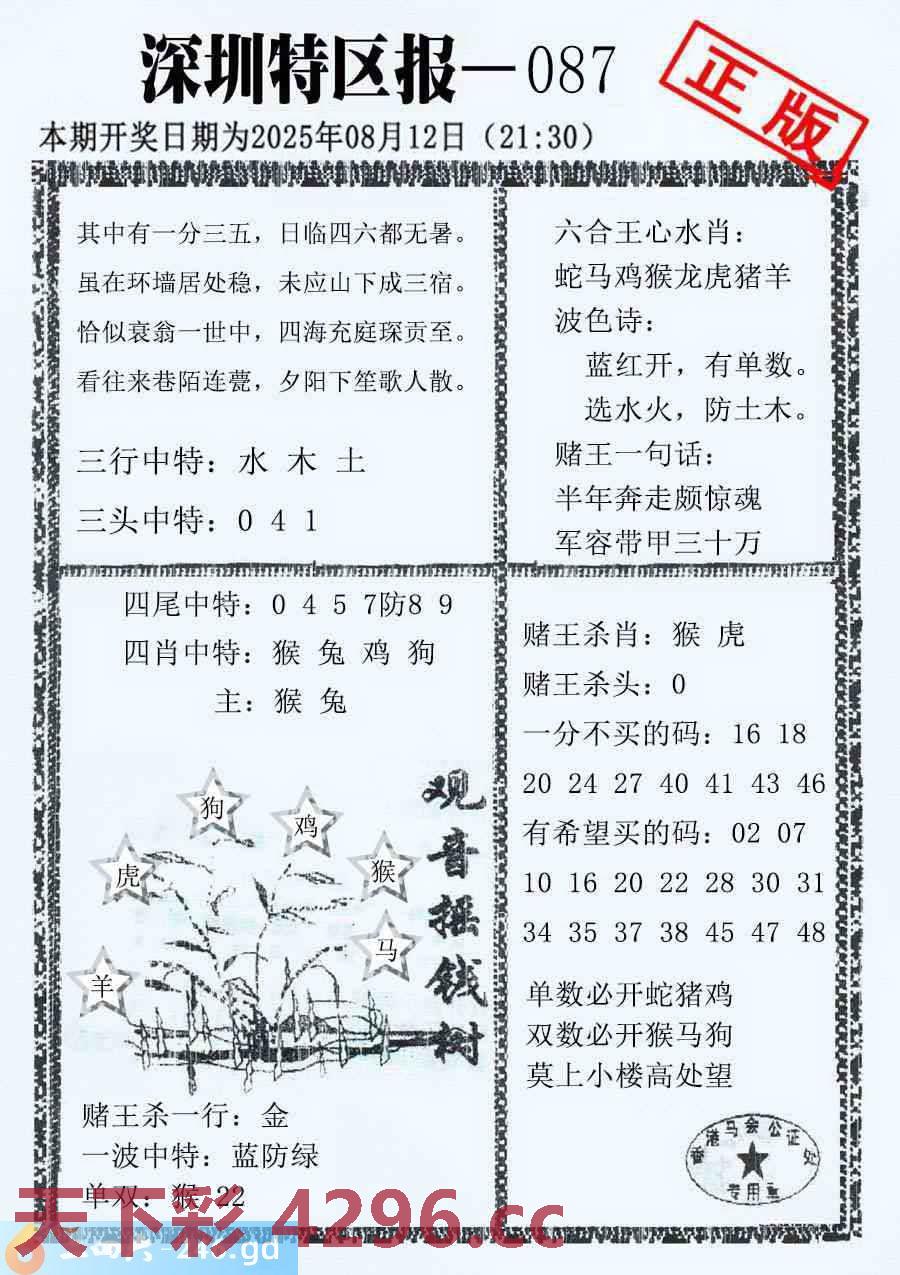 深圳特区报—087
正版
本期开奖日期为2025年08月12日（21:30）
其中有一分三五，日临四六都无暑。
虽在环墙居处稳，未应山下成三宿。
恰似衰翁一世中，四海充庭琛贡至。
看往来巷陌连甍，夕阳下笙歌人散。
三行中特：水 木 土
三头中特：0 4 1
六合王心水肖：
蛇马鸡猴龙虎猪羊
波色诗：
蓝红开，有单数。
选水火，防土木。
赌王一句话：
半年奔走颇惊魂
军容带甲三十万
四尾中特：0 4 5 7防8 9
四肖中特：猴 兔 鸡 狗
主：猴 兔
观音摇钱树
狗
鸡
虎
猴
马
羊
赌王杀一行：金
一波中特：蓝防绿
单双：猴 22
赌王杀肖：猴 虎
赌王杀头：0
一分不买的码：16 18
20 24 27 40 41 43 46
有希望买的码：02 07
10 16 20 22 28 30 31
34 35 37 38 45 47 48
单数必开蛇猪鸡
双数必开猴马狗
莫上小楼高处望
香港马会公证处
专用章
天下彩 4296.cc